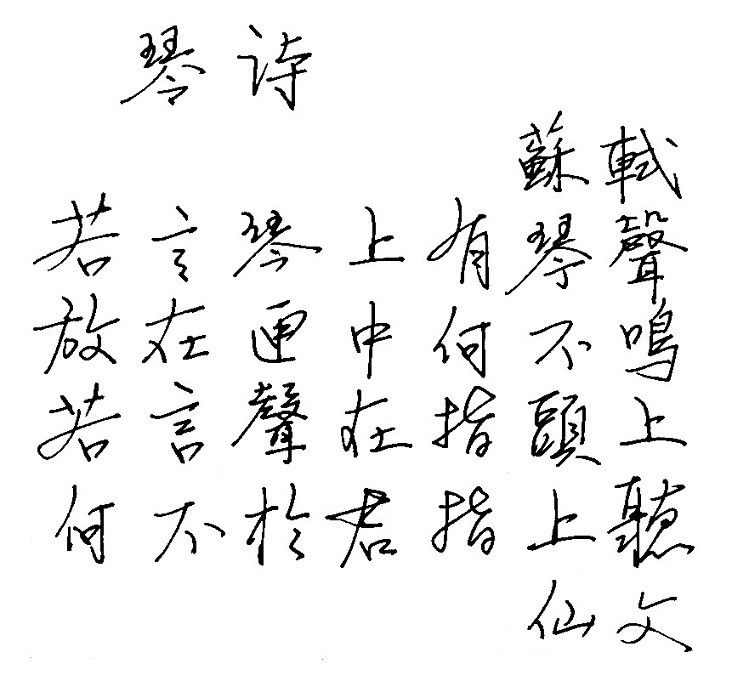 琴诗
蘇軾
若言琴上有琴聲
放在匣中何不鳴
若言聲在指頭上
何不於君指上聽
仙文